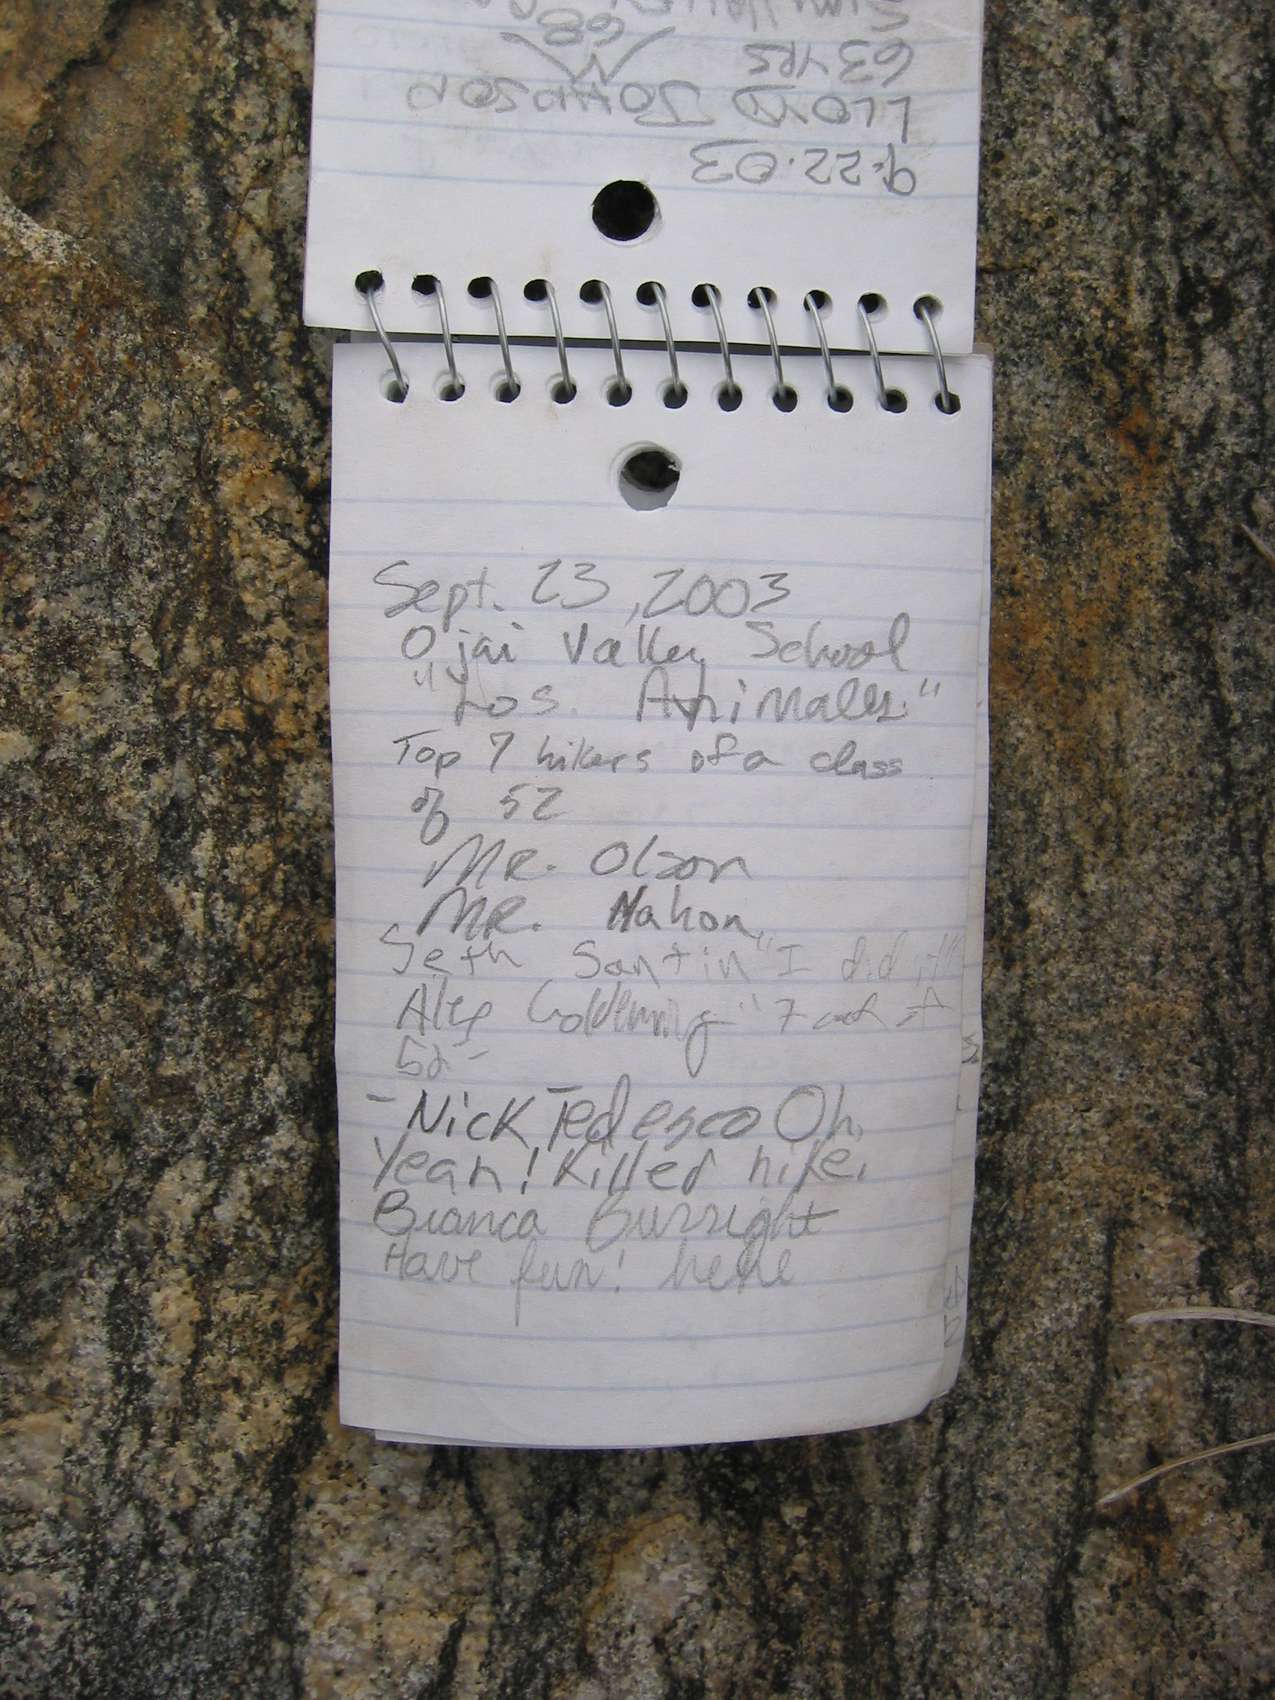 9.22.03
LLOYD JOHNSON
63 YRS 68
Sept. 23, 2003
Ojai Valley School
"Los. Animales."
Top 7 hikers of a class
of 52
MR. Olson
MR. Mahon
Seth Santin "I did it!"
Alex "7 out of
52"
- Nick Tedesco Oh,
Yeah! Killed hike.
Bianca Burright
Have fun! hehe